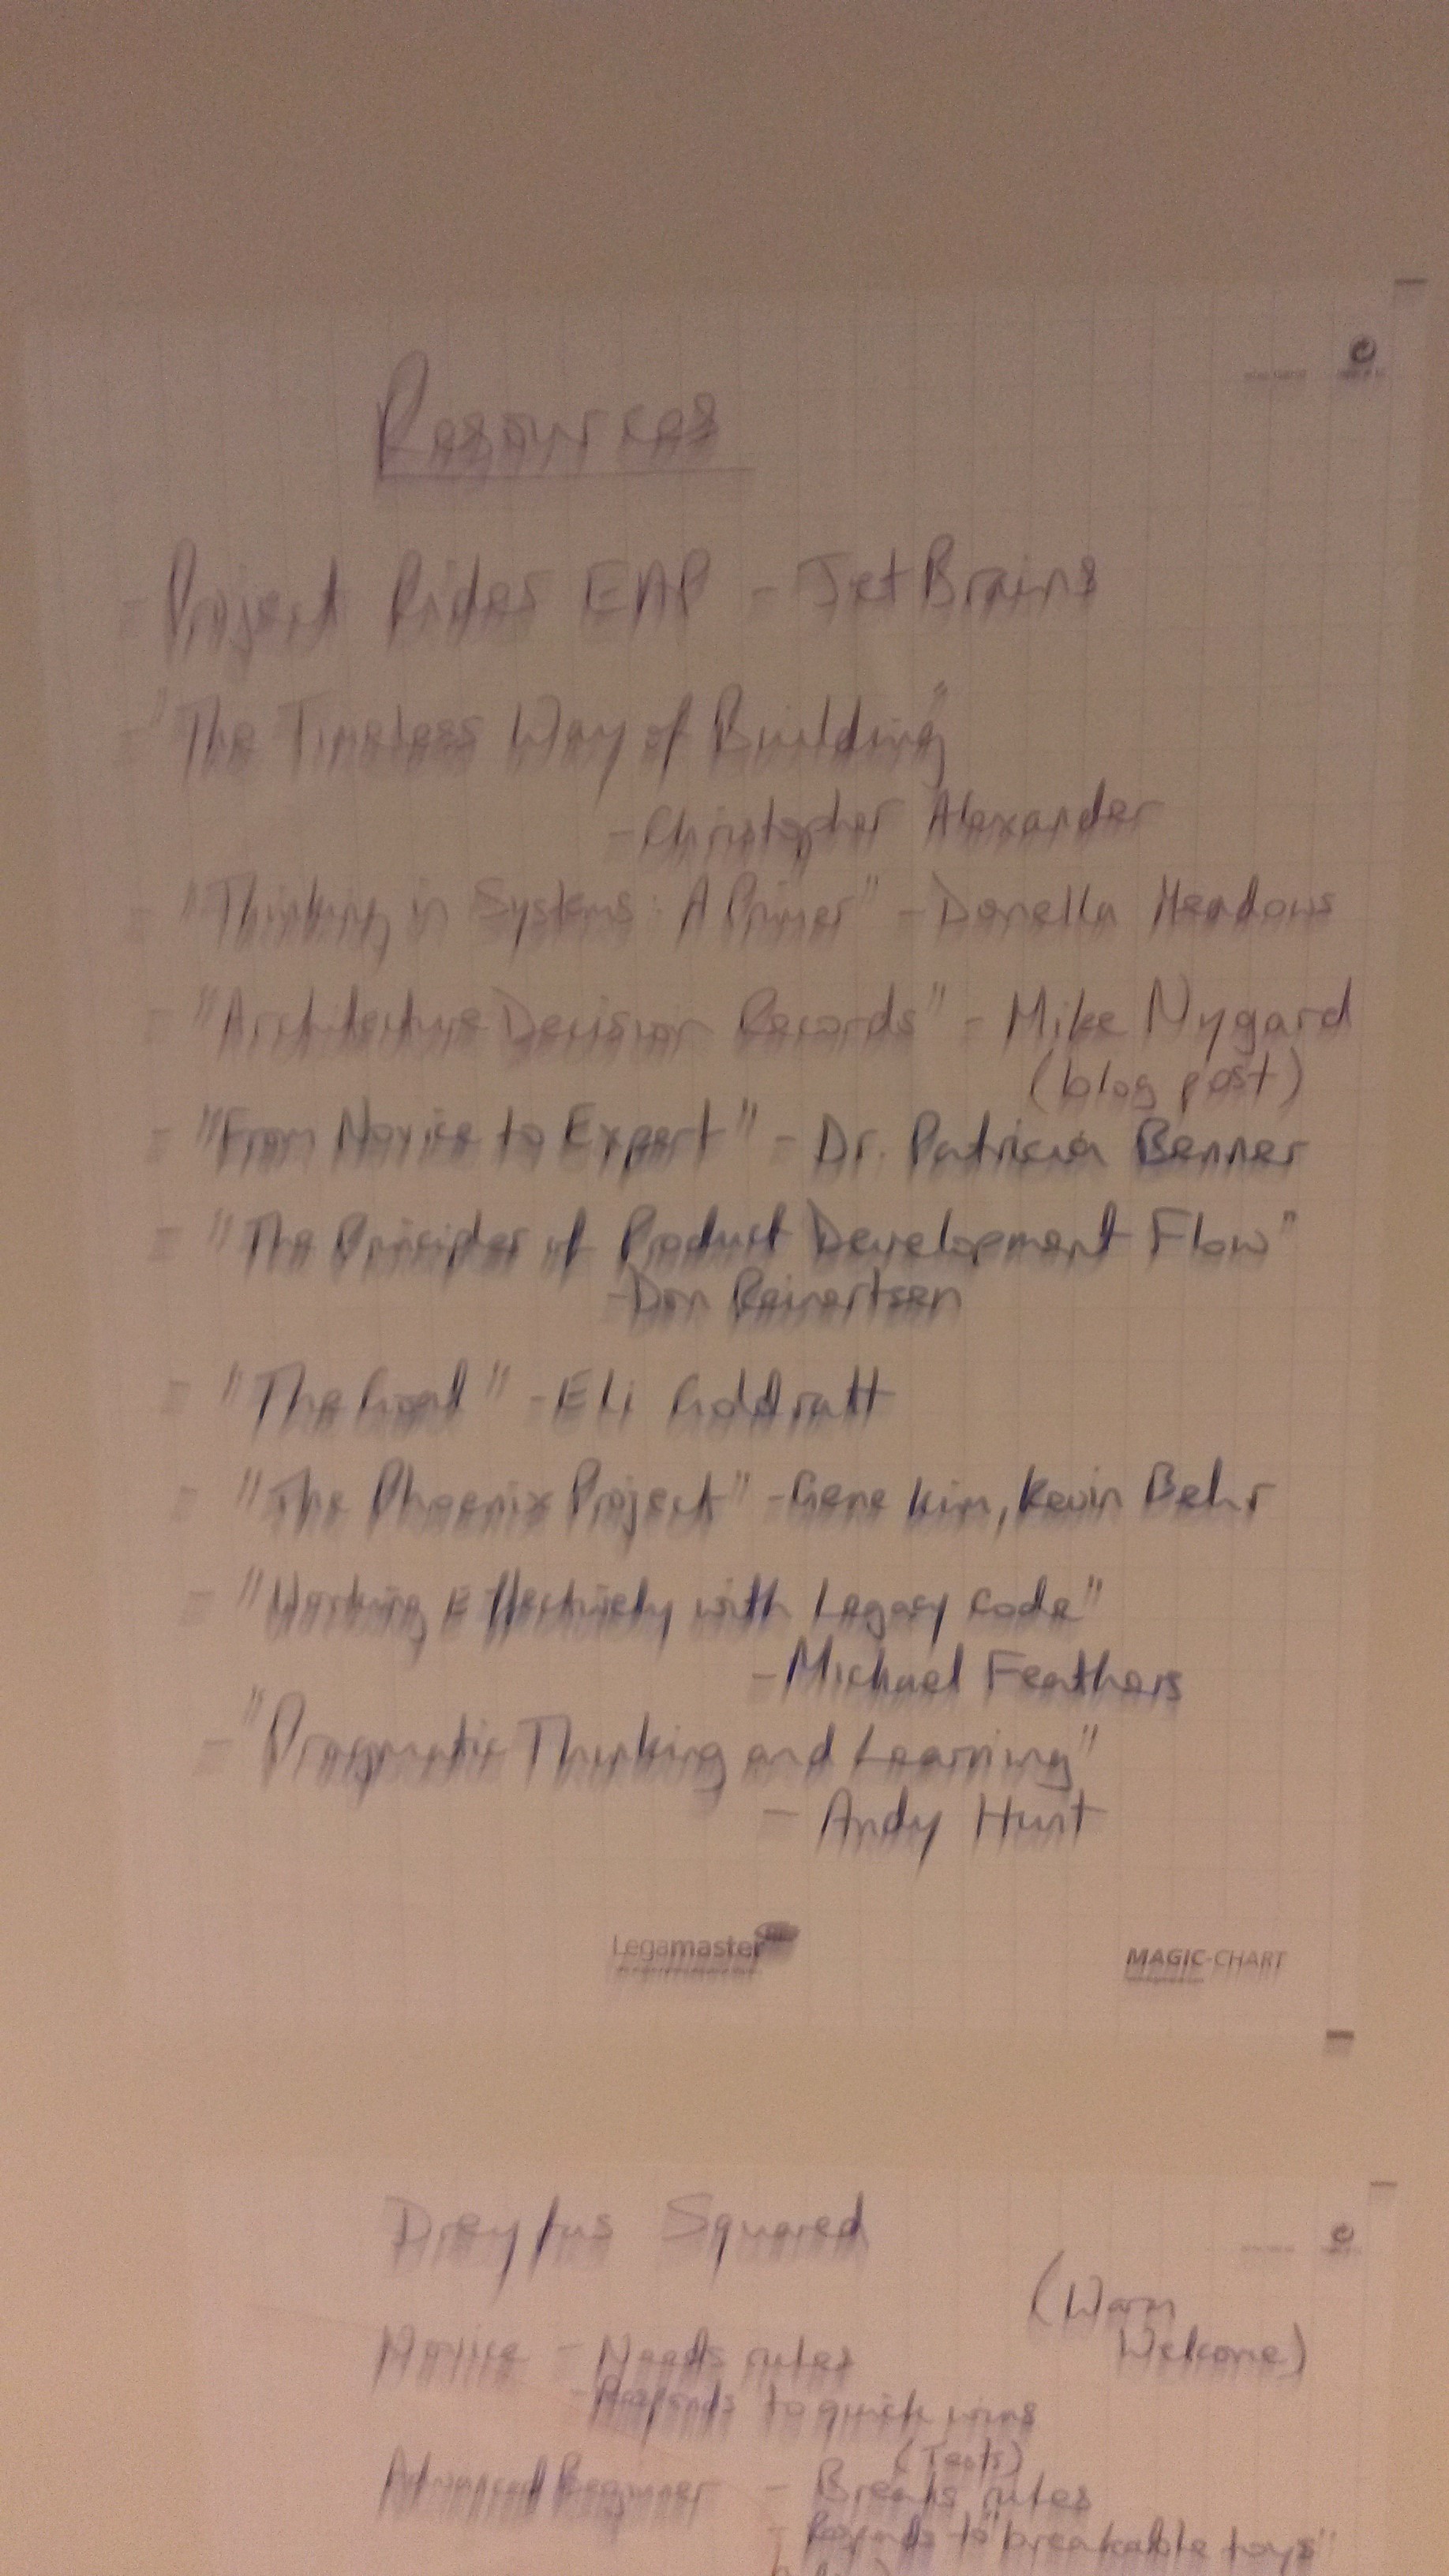 Resources
- Project Rider EAP - JetBrains
- "The Timeless Way of Building"
- Christopher Alexander
- "Thinking in Systems: A Primer" - Donella Meadows
- "Architecture Decision Records" - Mike Nygard
(blog post)
- "From Novice to Expert" - Dr. Patricia Benner
- "The Principles of Product Development Flow"
- Don Reinertsen
- "The Goal" - Eli Goldratt
- "The Phoenix Project" - Gene Kim, Kevin Behr
- "Working Effectively with Legacy Code"
- Michael Feathers
- "Pragmatic Thinking and Learning"
- Andy Hunt
Legamaster
MAGIC-CHART
Dreyfus Squared
(Warm
Welcome)
Novice - Needs rules
- Responds to quick wins
(Tests)
Advanced Beginner - Breaks rules
- Responds to "breakable toys"